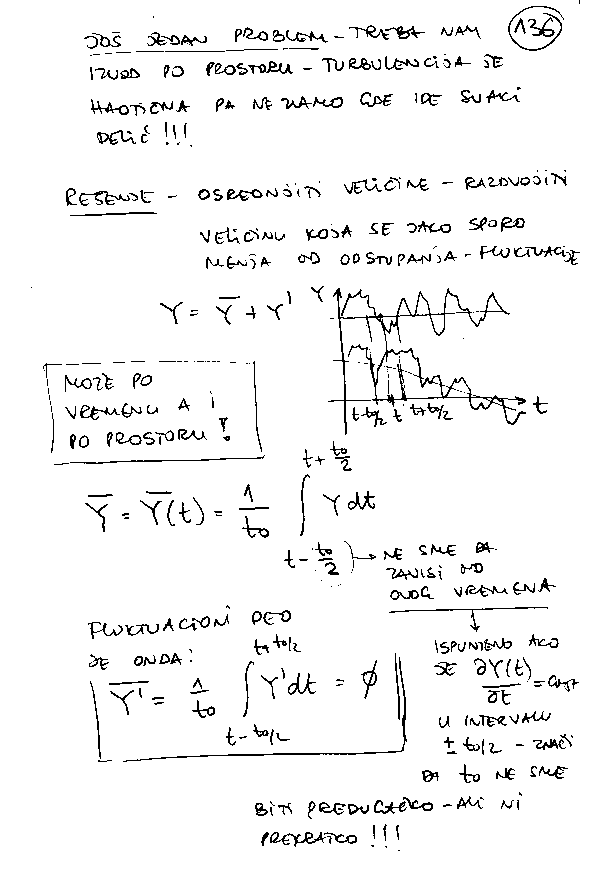 JOŠ JEDAN PROBLEM - TREBA NAM
136
IZVOD PO PROSTORU - TURBULENCIJA JE
HAOTIČNA PA NE ZNAMO GDE IDE SVAKI
DELIĆ !!!
REŠENJE - OSREDNJITI VELIČINE - RAZDVOJITI
VELIČINU KOJA SE JAKO SPORO
MENJA OD ODSTUPANJA - FLUKTUACIJE
Y = Y̅ + Y'
Y
t-to/2 t t+to/2
t
MOŽE PO
VREMENU A I
PO PROSTORU !
Y̅ = Y̅(t) = 1/to ∫ Y dt
t + to/2
t - to/2
→ NE SME DA
ZAVISI OD
OVOG VREMENA
FLUKTUACIONI DEO
JE ONDA:
Y̅'̅ = 1/to ∫ Y'dt = ∅
t+to/2
t-to/2
ISPUNJENO AKO
JE ∂Y(t)/∂t = const
U INTERVALU
± to/2 - ZNAČI
DA to NE SME
BITI PREDUGAČKO - ALI NI
PREKRATKO !!!